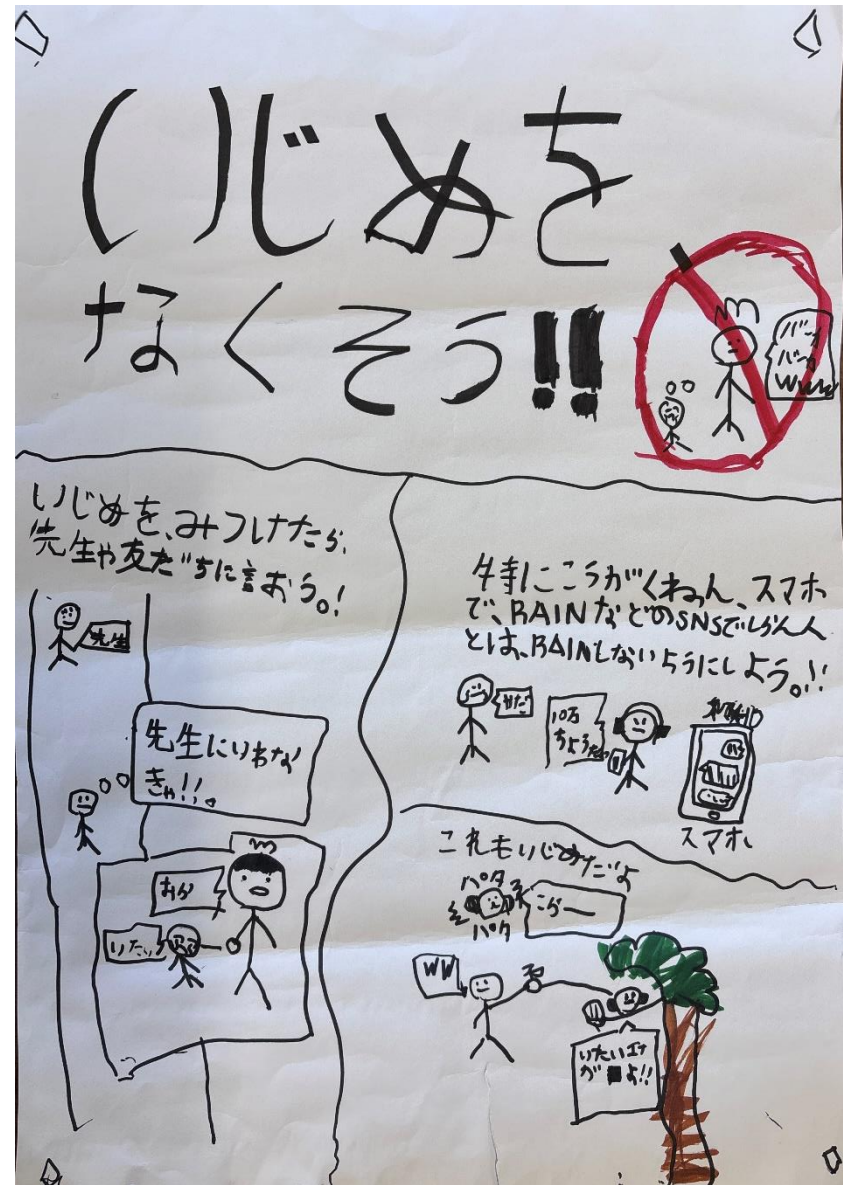 いじめを
なくそう!!
バカ
バーカ
www
いじめを、みつけたら、
先生や友だちに言おう。!
先生
先生にいわな
きゃ!!。
おら
いたい
特にこうがくねん、スマホ
で、RAINなどのSNSでしらん人
とは、RAINしないようにしよう。!!
10万
ちょうだい
スマホ
これもいじめだよ
パタ
パタ
こらー
WW